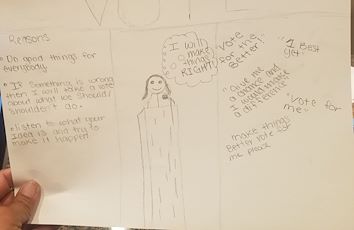 VOTE
Reasons
• Do good things for
everybody
• If something is wrong
then I will take a vote
about what we should/
shouldn't do.
• listen to what your
idea is and try to
make it happen
I will
make
things
RIGHT!
"Vote
for the
Better"
"1 Best
yet"
"Give me
a chance and
I would make
a difference"
"Vote for
me"
make things
Better vote for
me please